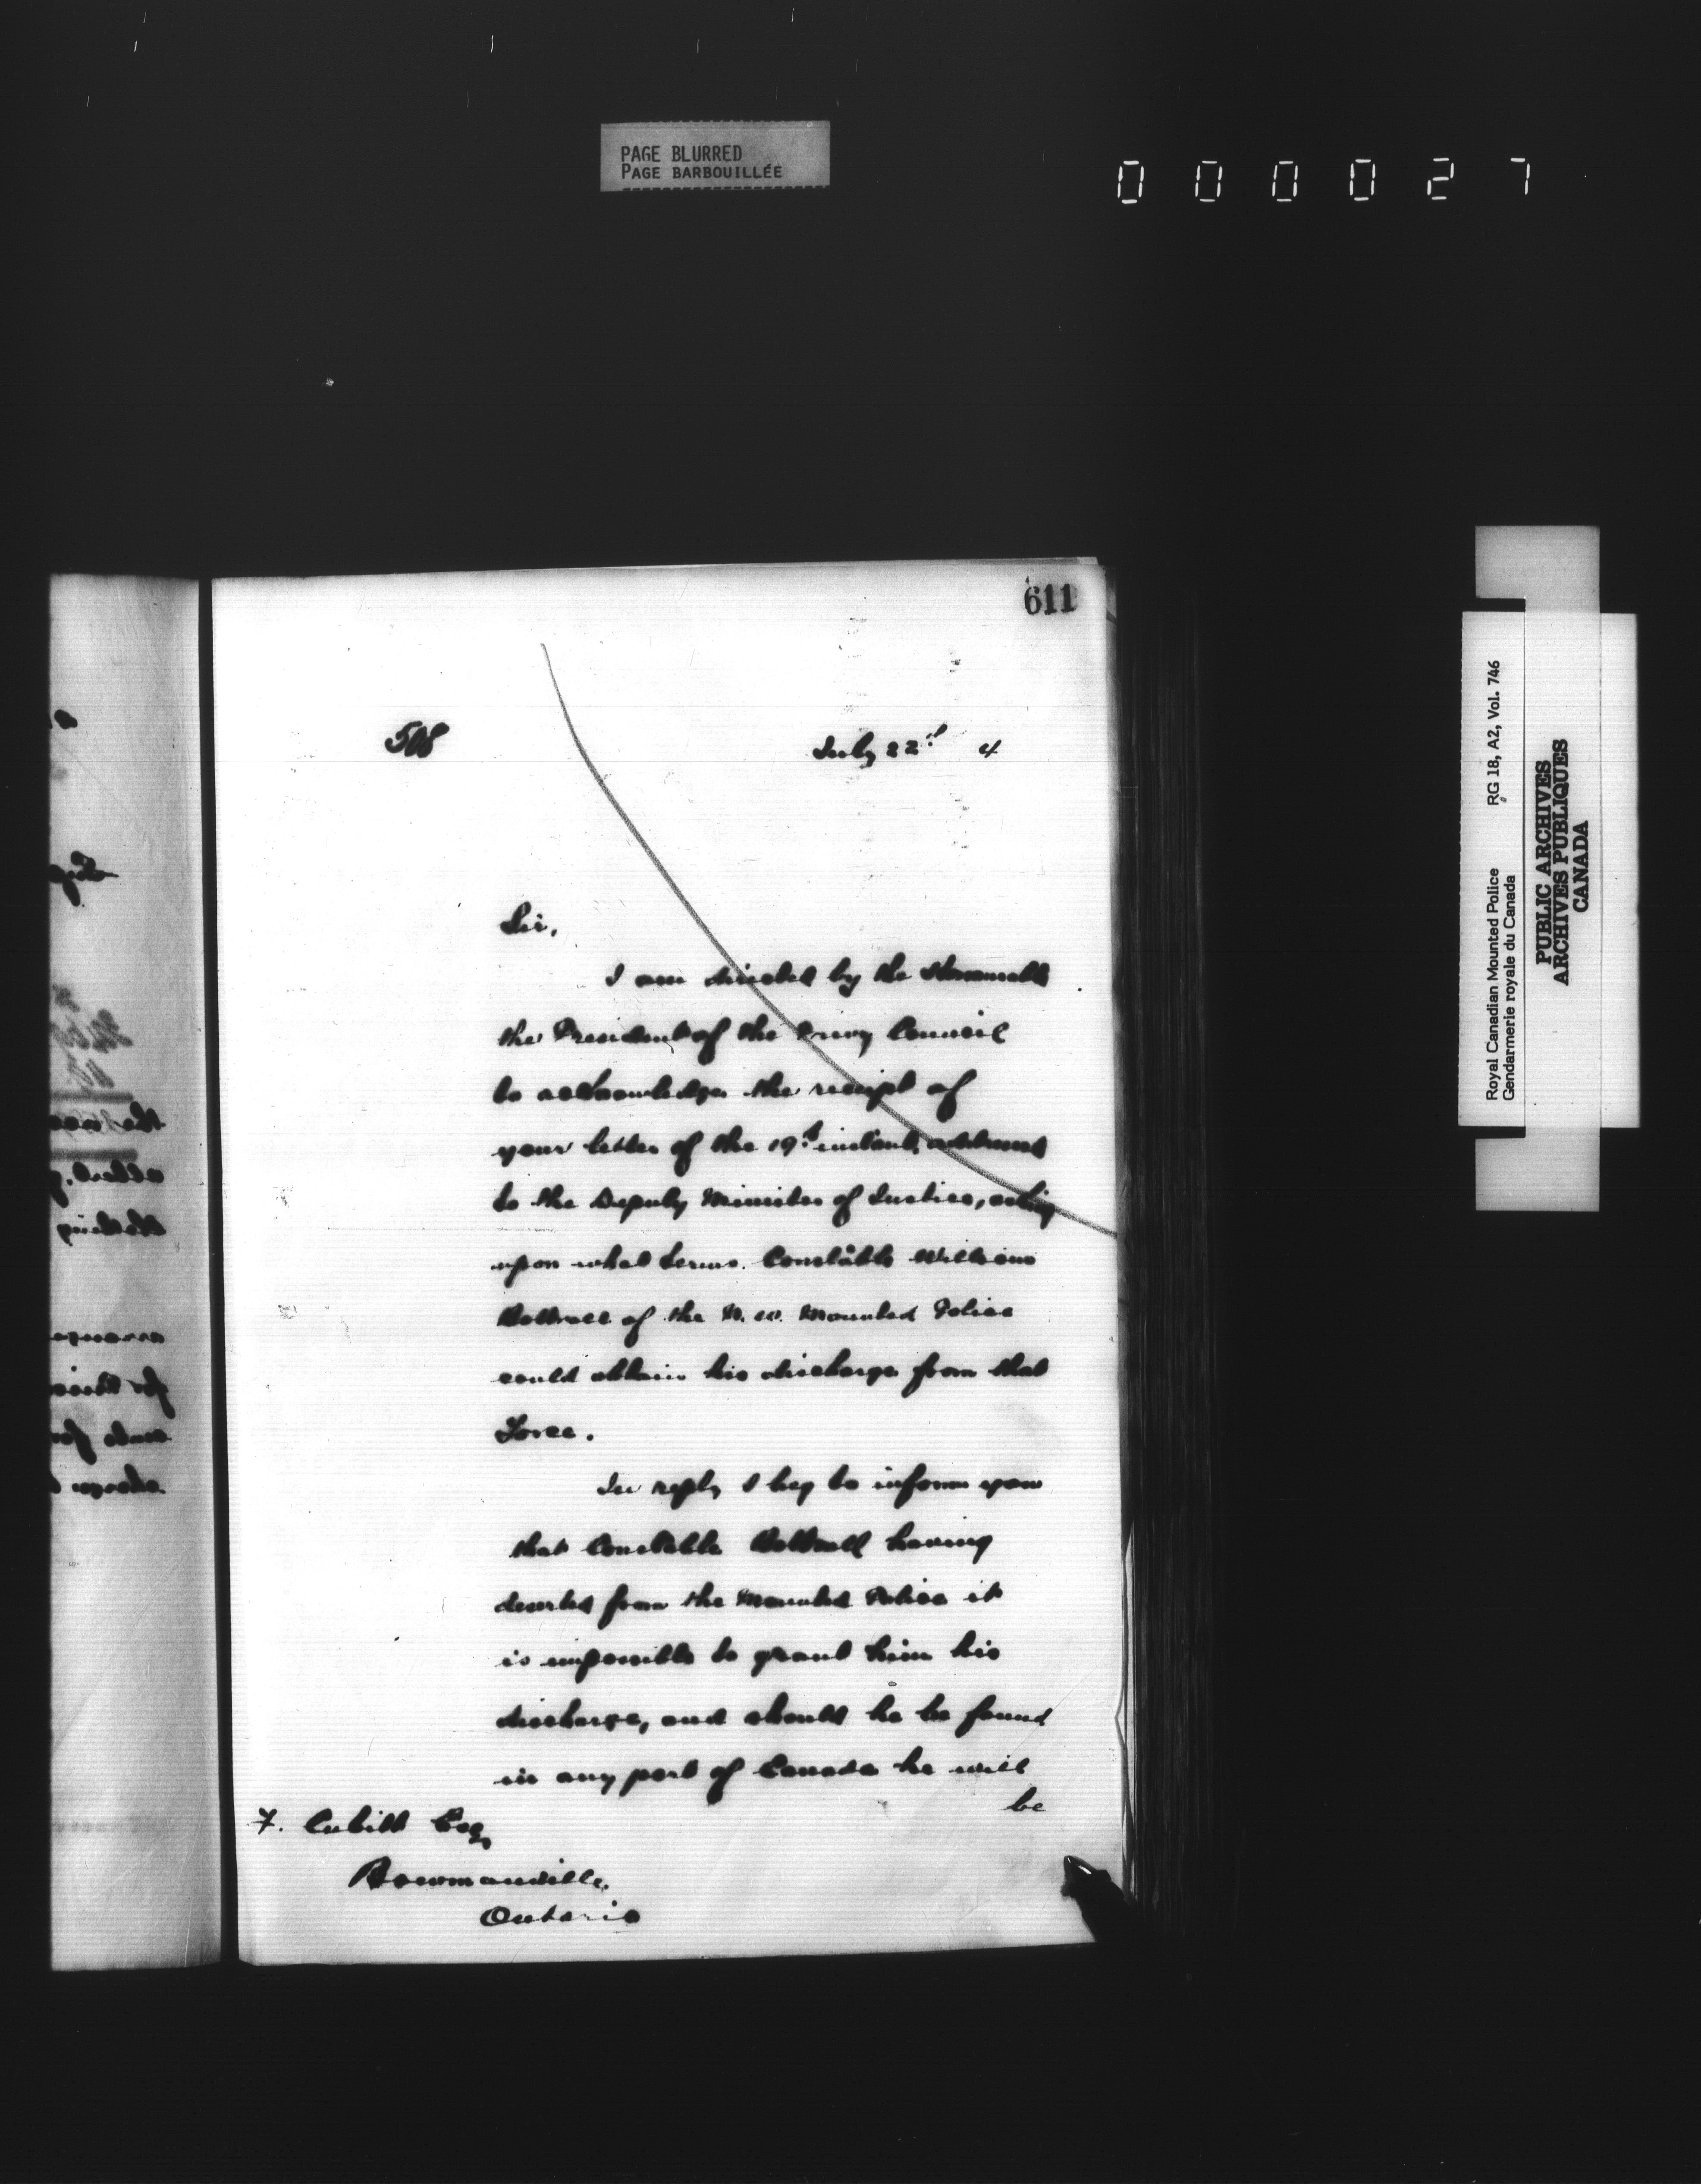 PAGE BLURRED
PAGE BARBOUILLÉE
0 0 0 0 2 7
611
508
July 22d 4
Sir,
I am directed by the Honourable
the President of the Privy Council
to acknowledge the receipt of
your letter of the 19th instant, addressed
to the Deputy Minister of Justice, asking
upon what terms Constable William
of the N. W. Mounted Police
could obtain his discharge from that
Force.
In reply I beg to inform you
that Constable having
deserted from the Mounted Police it
is impossible to grant him his
discharge, and should he be found
in any part of Canada he will
be
F. Cubitt Esq,
Bowmanville,
Ontario
Royal Canadian Mounted Police RG 18, A2, Vol. 746
Gendarmerie royale du Canada
PUBLIC ARCHIVES
ARCHIVES PUBLIQUES
CANADA